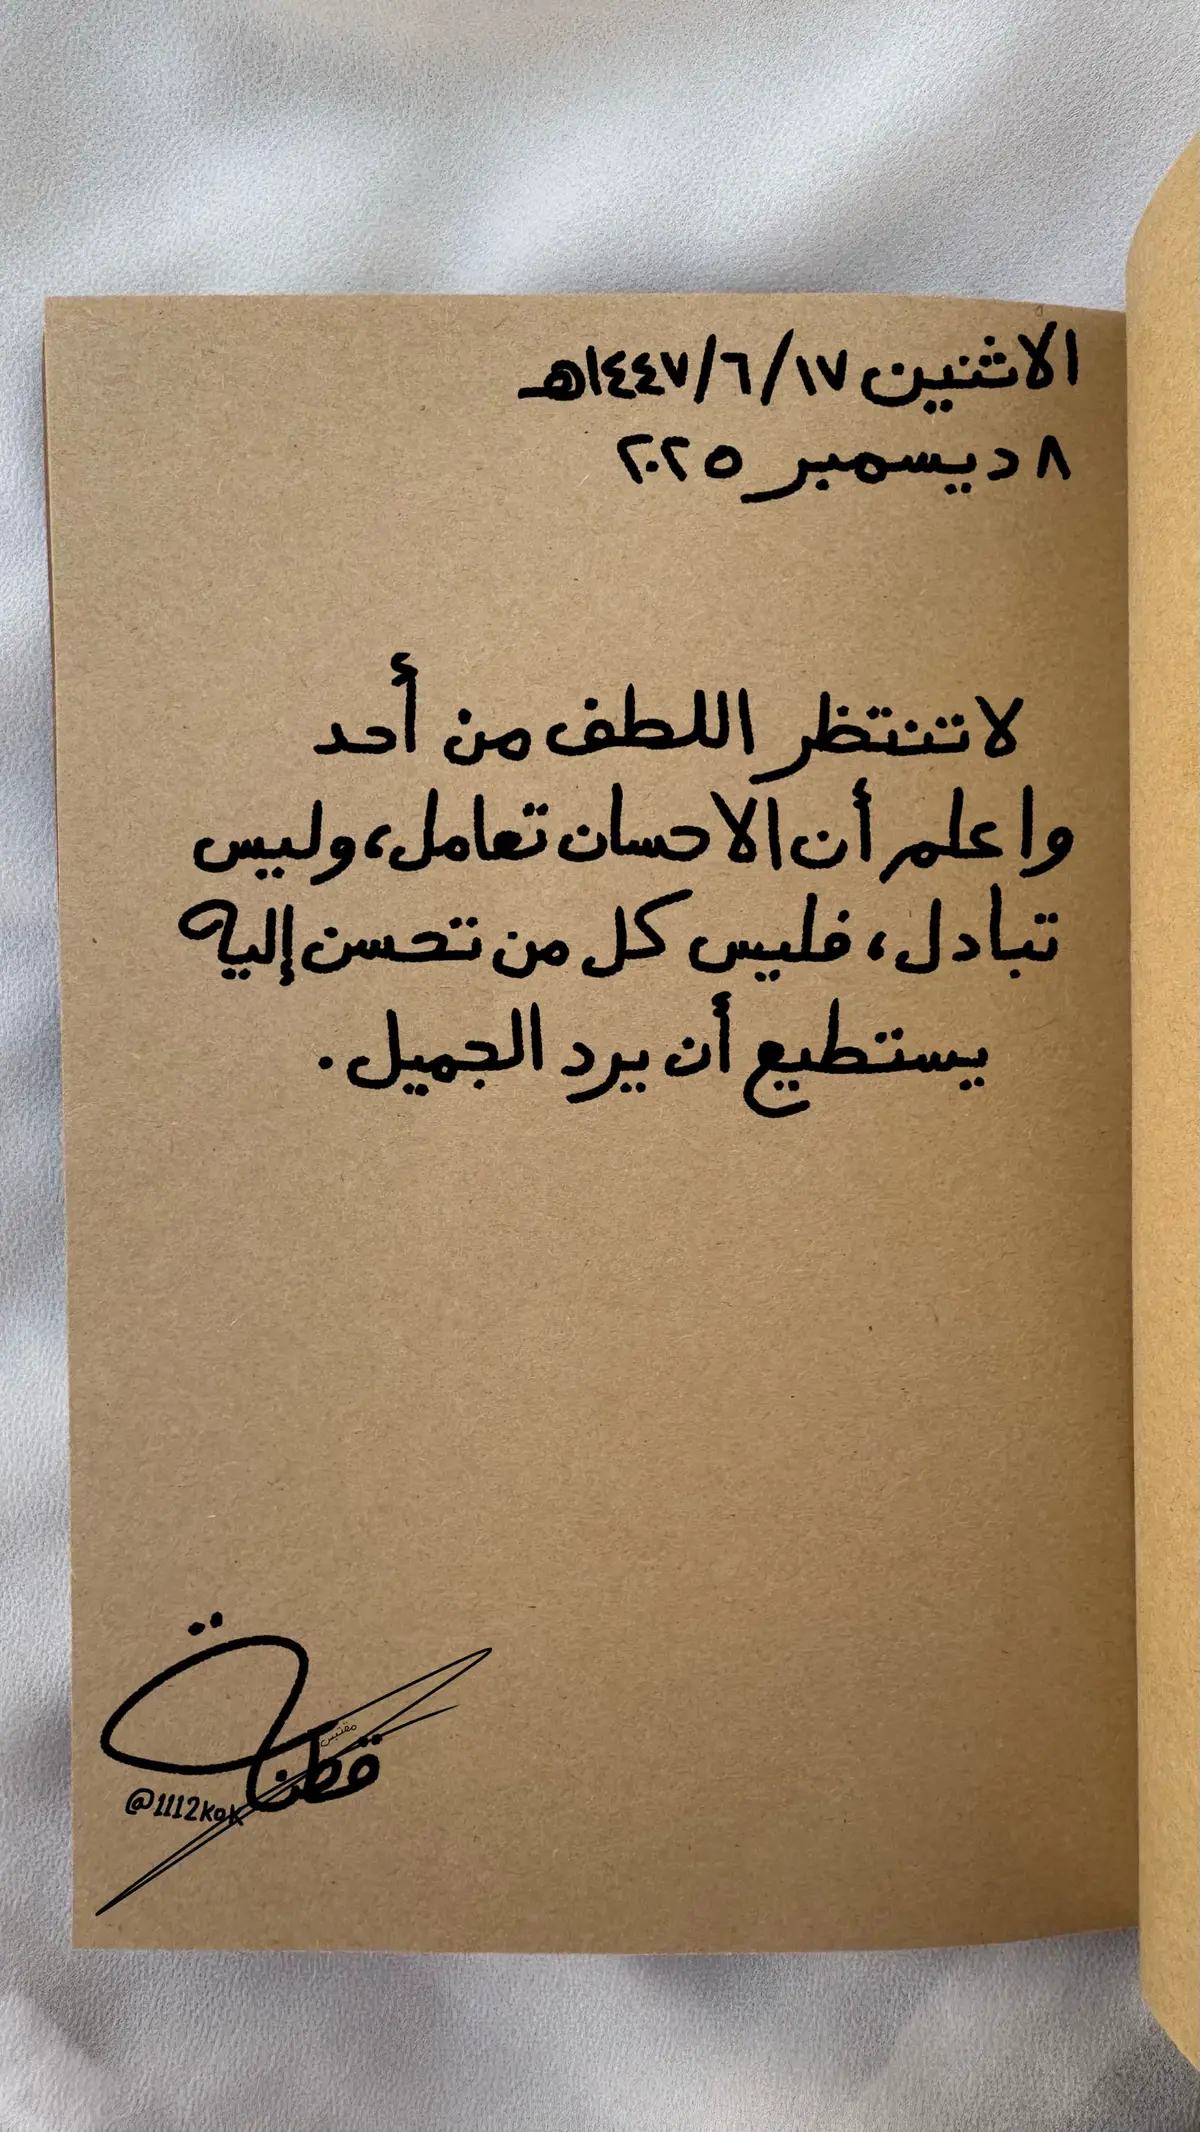 الاثنين ١٧/٦/١٤٤٧هـ
٨ ديسمبر ٢٠٢٥
لا تنتظر اللطف من أحد
واعلم أن الاحسان تعامل، وليس
تبادل، فليس كل من تحسن إليه
يستطيع أن يرد الجميل.
مقتبس
قطنة
@1112kok